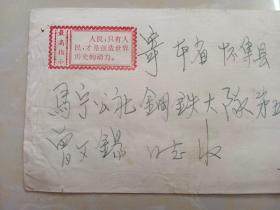 最高指示
人民，只有人
民，才是创造世界
历史的动力。
寄本省 怀集县
马宁公社 钢铁大队 第五
曾文錦 同志 收